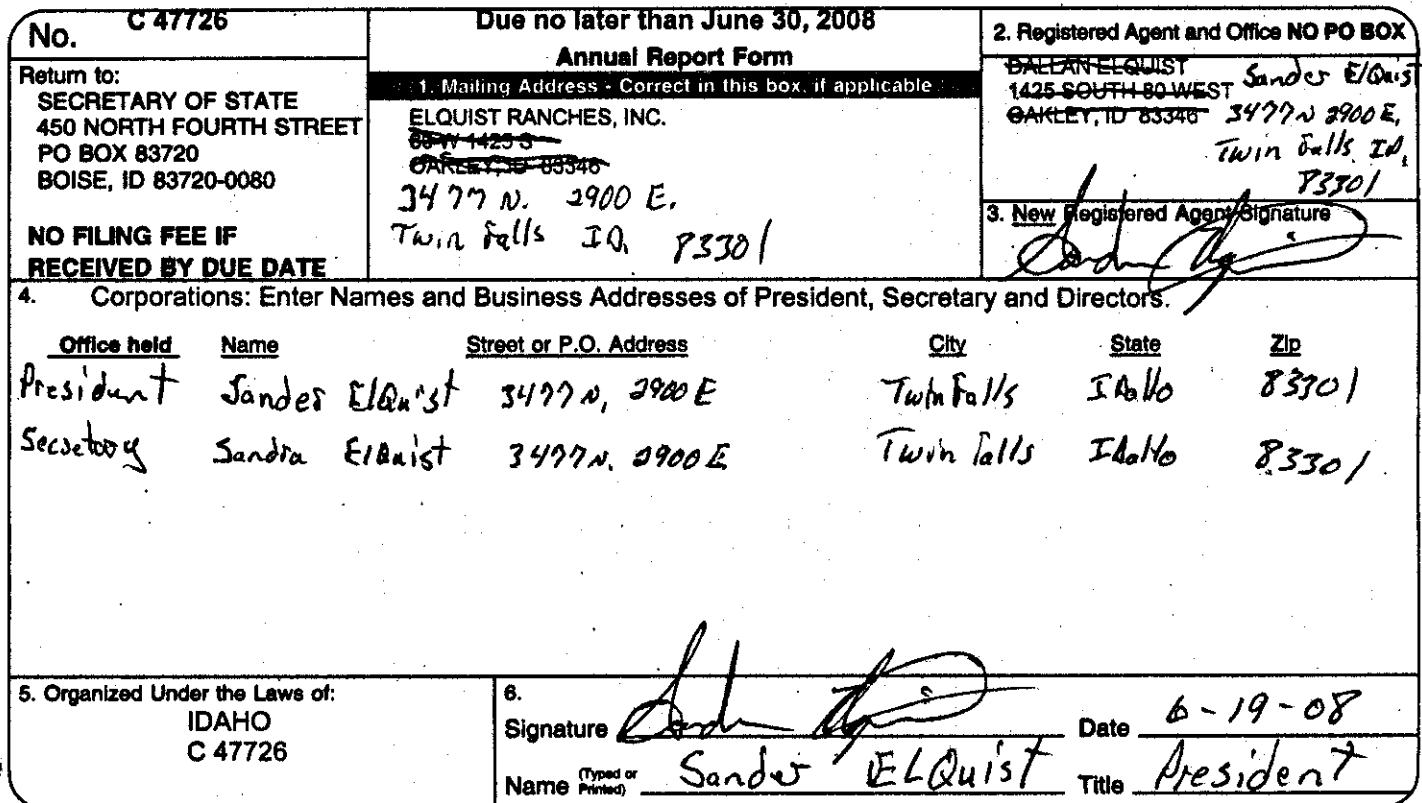 No. C 47726
Return to:
SECRETARY OF STATE
450 NORTH FOURTH STREET
PO BOX 83720
BOISE, ID 83720-0080
NO FILING FEE IF
RECEIVED BY DUE DATE
Due no later than June 30, 2008
Annual Report Form
1. Mailing Address - Correct in this box, if applicable
ELQUIST RANCHES, INC.
80 W 1425 S
OAKLEY, ID 83346
3477 N. 2900 E.
Twin Falls ID, 83301
2. Registered Agent and Office NO PO BOX
DALLAN ELQUIST
1425 SOUTH 80 WEST
OAKLEY, ID 83346
Sander ElQuist
3477 N 2900 E,
Twin Falls ID,
83301
3. New Registered Agent Signature
4. Corporations: Enter Names and Business Addresses of President, Secretary and Directors.
Office held Name Street or P.O. Address City State Zip
President Sander ElQuist 3477 N, 2900 E Twin Falls IDaHo 83301
Secretary Sandra ElQuist 3477 N. 2900 E Twin Falls IDaHo 83301
5. Organized Under the Laws of:
IDAHO
C 47726
6.
Signature Date 6-19-08
Name (Typed or Printed) Sander ELQuist Title President